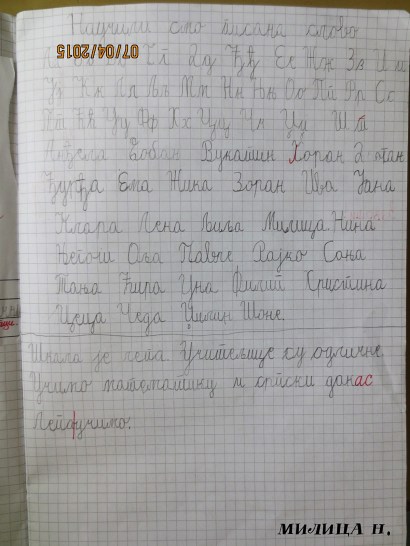 Научили смо писана слова
07/04/2015
Аа Бб Вв Гг Дд Ђђ Ее Жж Зз И и
Јј Кк Лл Љљ Мм Нн Њњ Оо Пп Рр Сс
Тт Ћћ Уу Фф Хх Цц Чч Џџ Ш
Анђела Бобан Вукашин Горан
Ђурђа Ема Жина Зоран Ива Јана
Клара Лена Љиља Милица Нина
Његош Оља Павле Рајко Сања
Тања Ћира Уна Филип Христина
Цеца Чеда Џилин Шоне
Школа је лепа Учитељице су одличне
Учимо математику и српски данас
учимо.
МИЛИЦА Н.